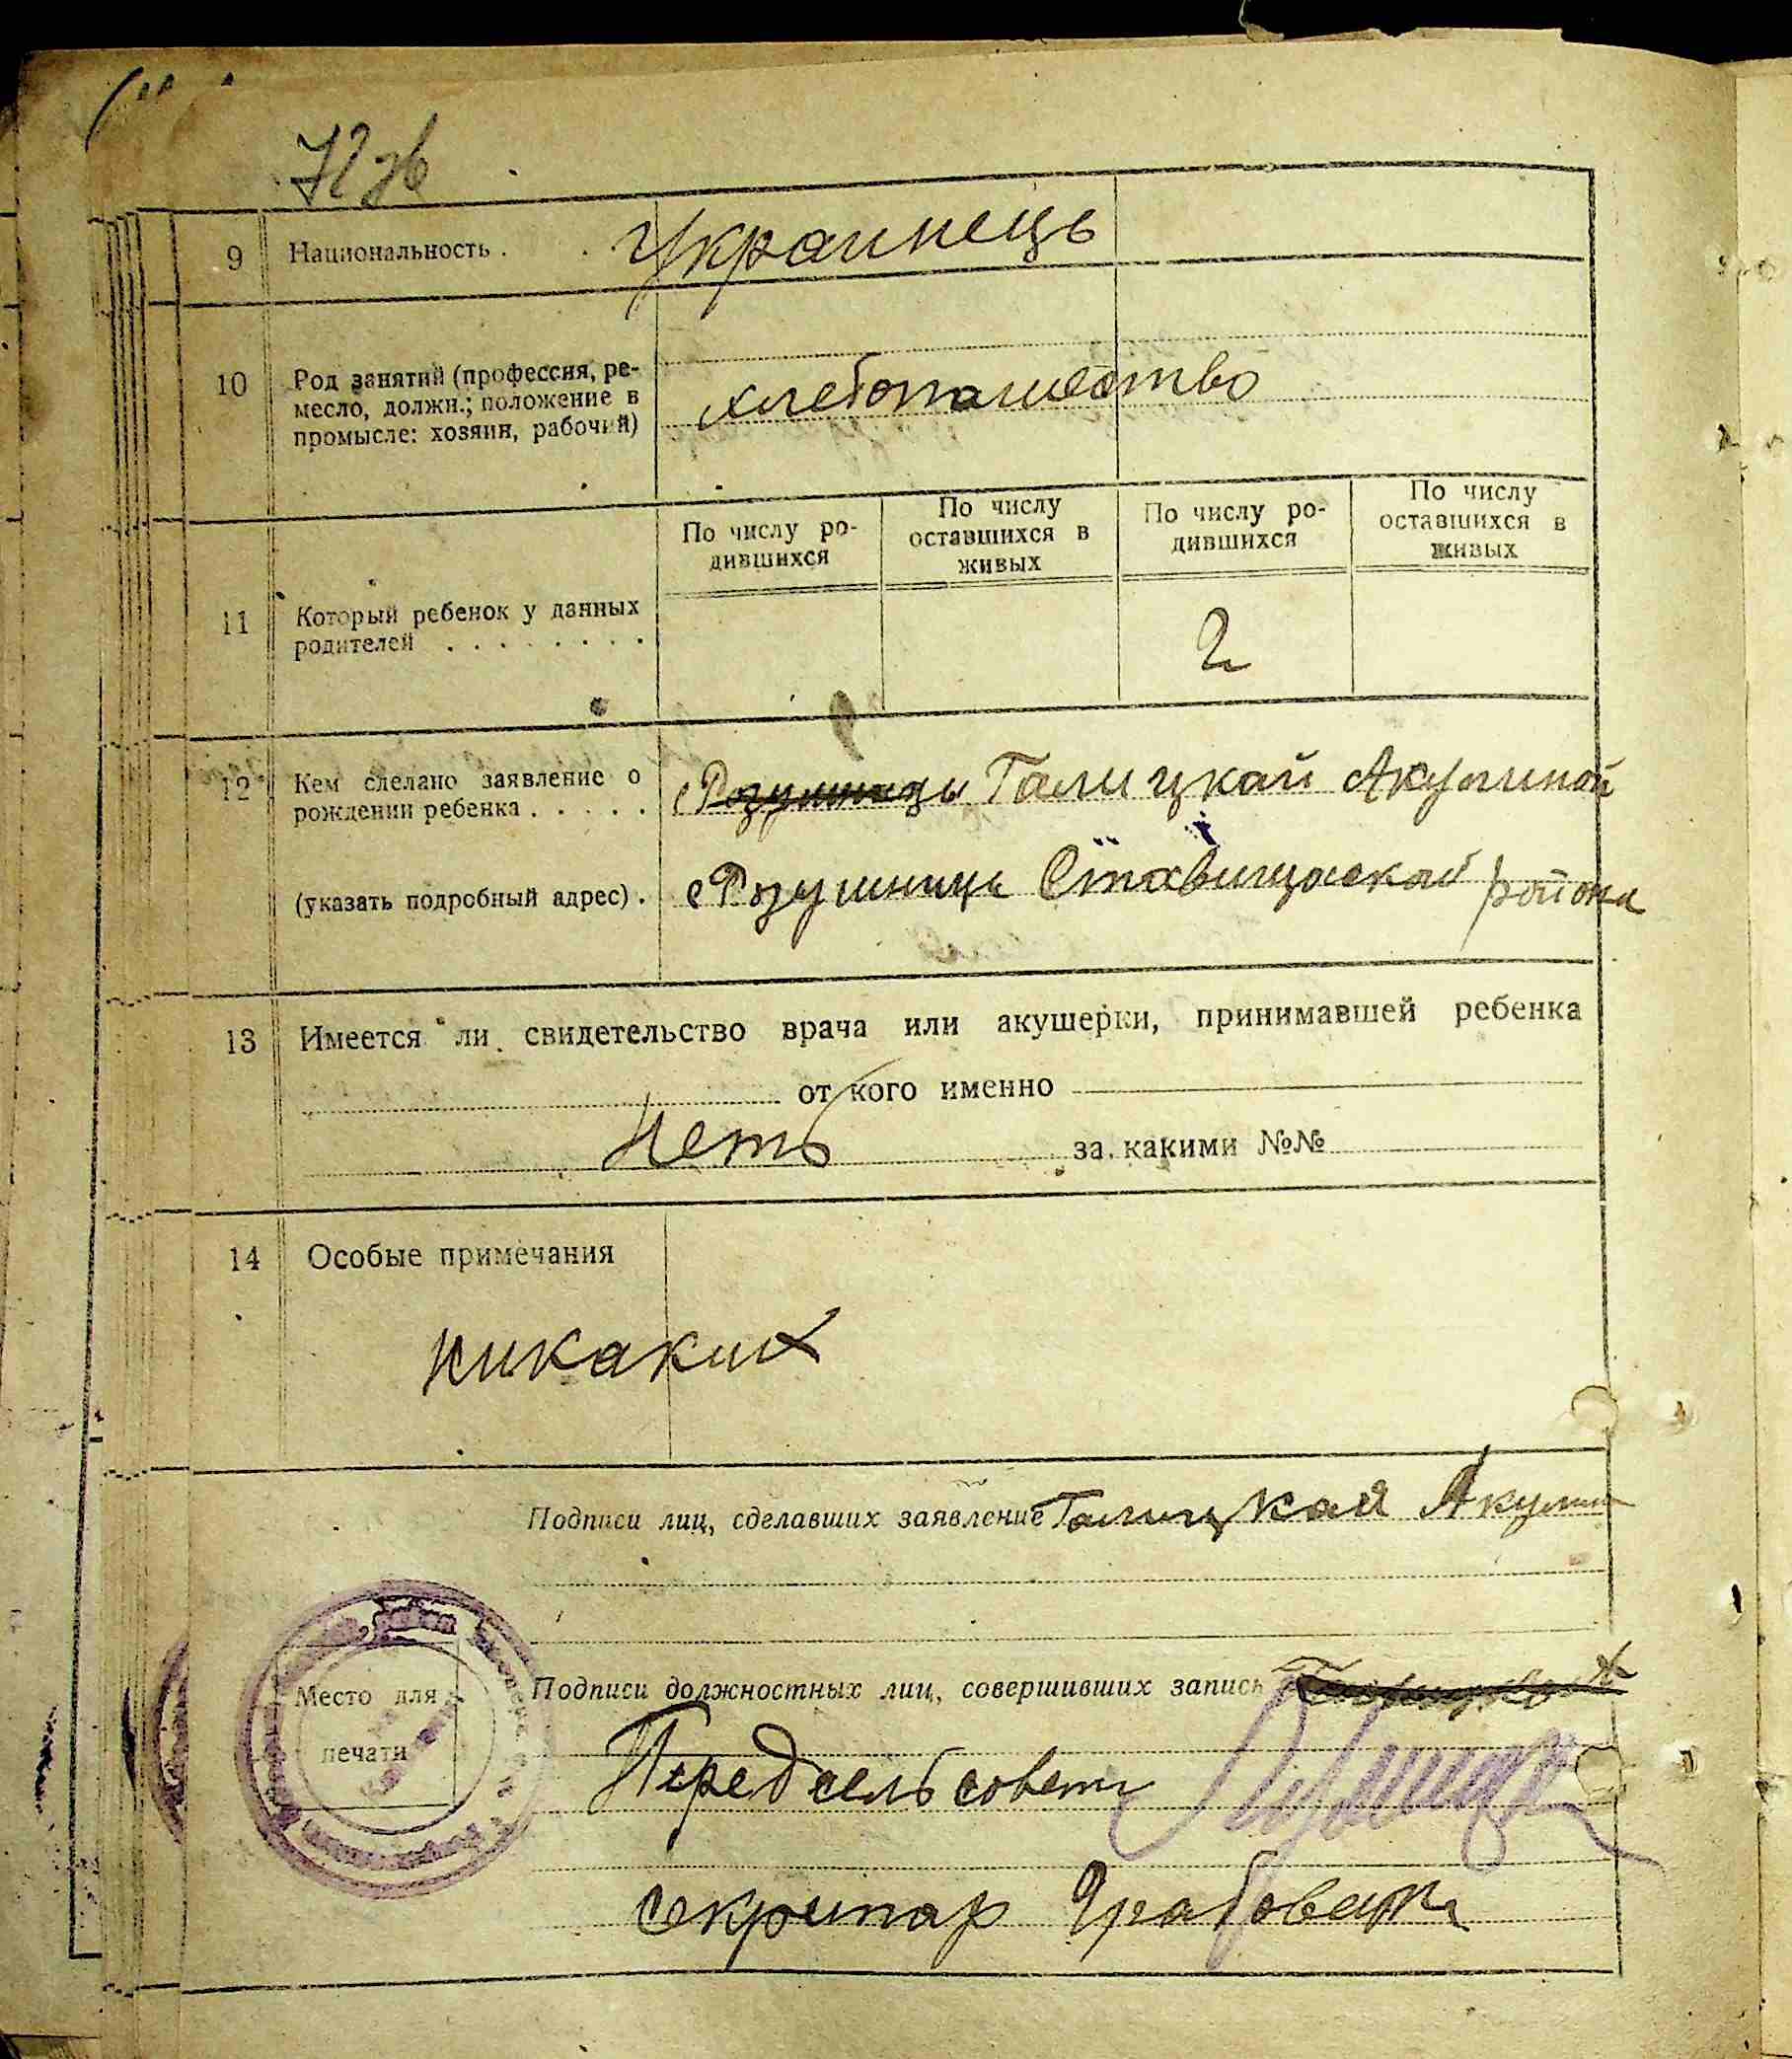 72 зв
9 Национальность . . Украинець
10 Род занятий (профессия, ре-
месло, должн.; положение в
промысле: хозяин, рабочий)
хлебопашество
По числу ро-
дившихся
По числу
оставшихся в
живых
По числу ро-
дившихся
По числу
оставшихся в
живых
11 Который ребенок у данных
родителей . . . . . . . .
2
12 Кем сделано заявление о
рождении ребенка . . . . .
Галицкой Акулиной
(указать подробный адрес) .
с Розумниця Ставищаской района
13 Имеется ли свидетельство врача или акушерки, принимавшей ребенка
от кого именно
Нетъ за какими №№
14 Особые примечания
никаких
Подписи лиц, сделавших заявление Галицкая Акулин
Подписи должностных лиц, совершивших запись
Место для
печати
Предсельсовета
Секритар